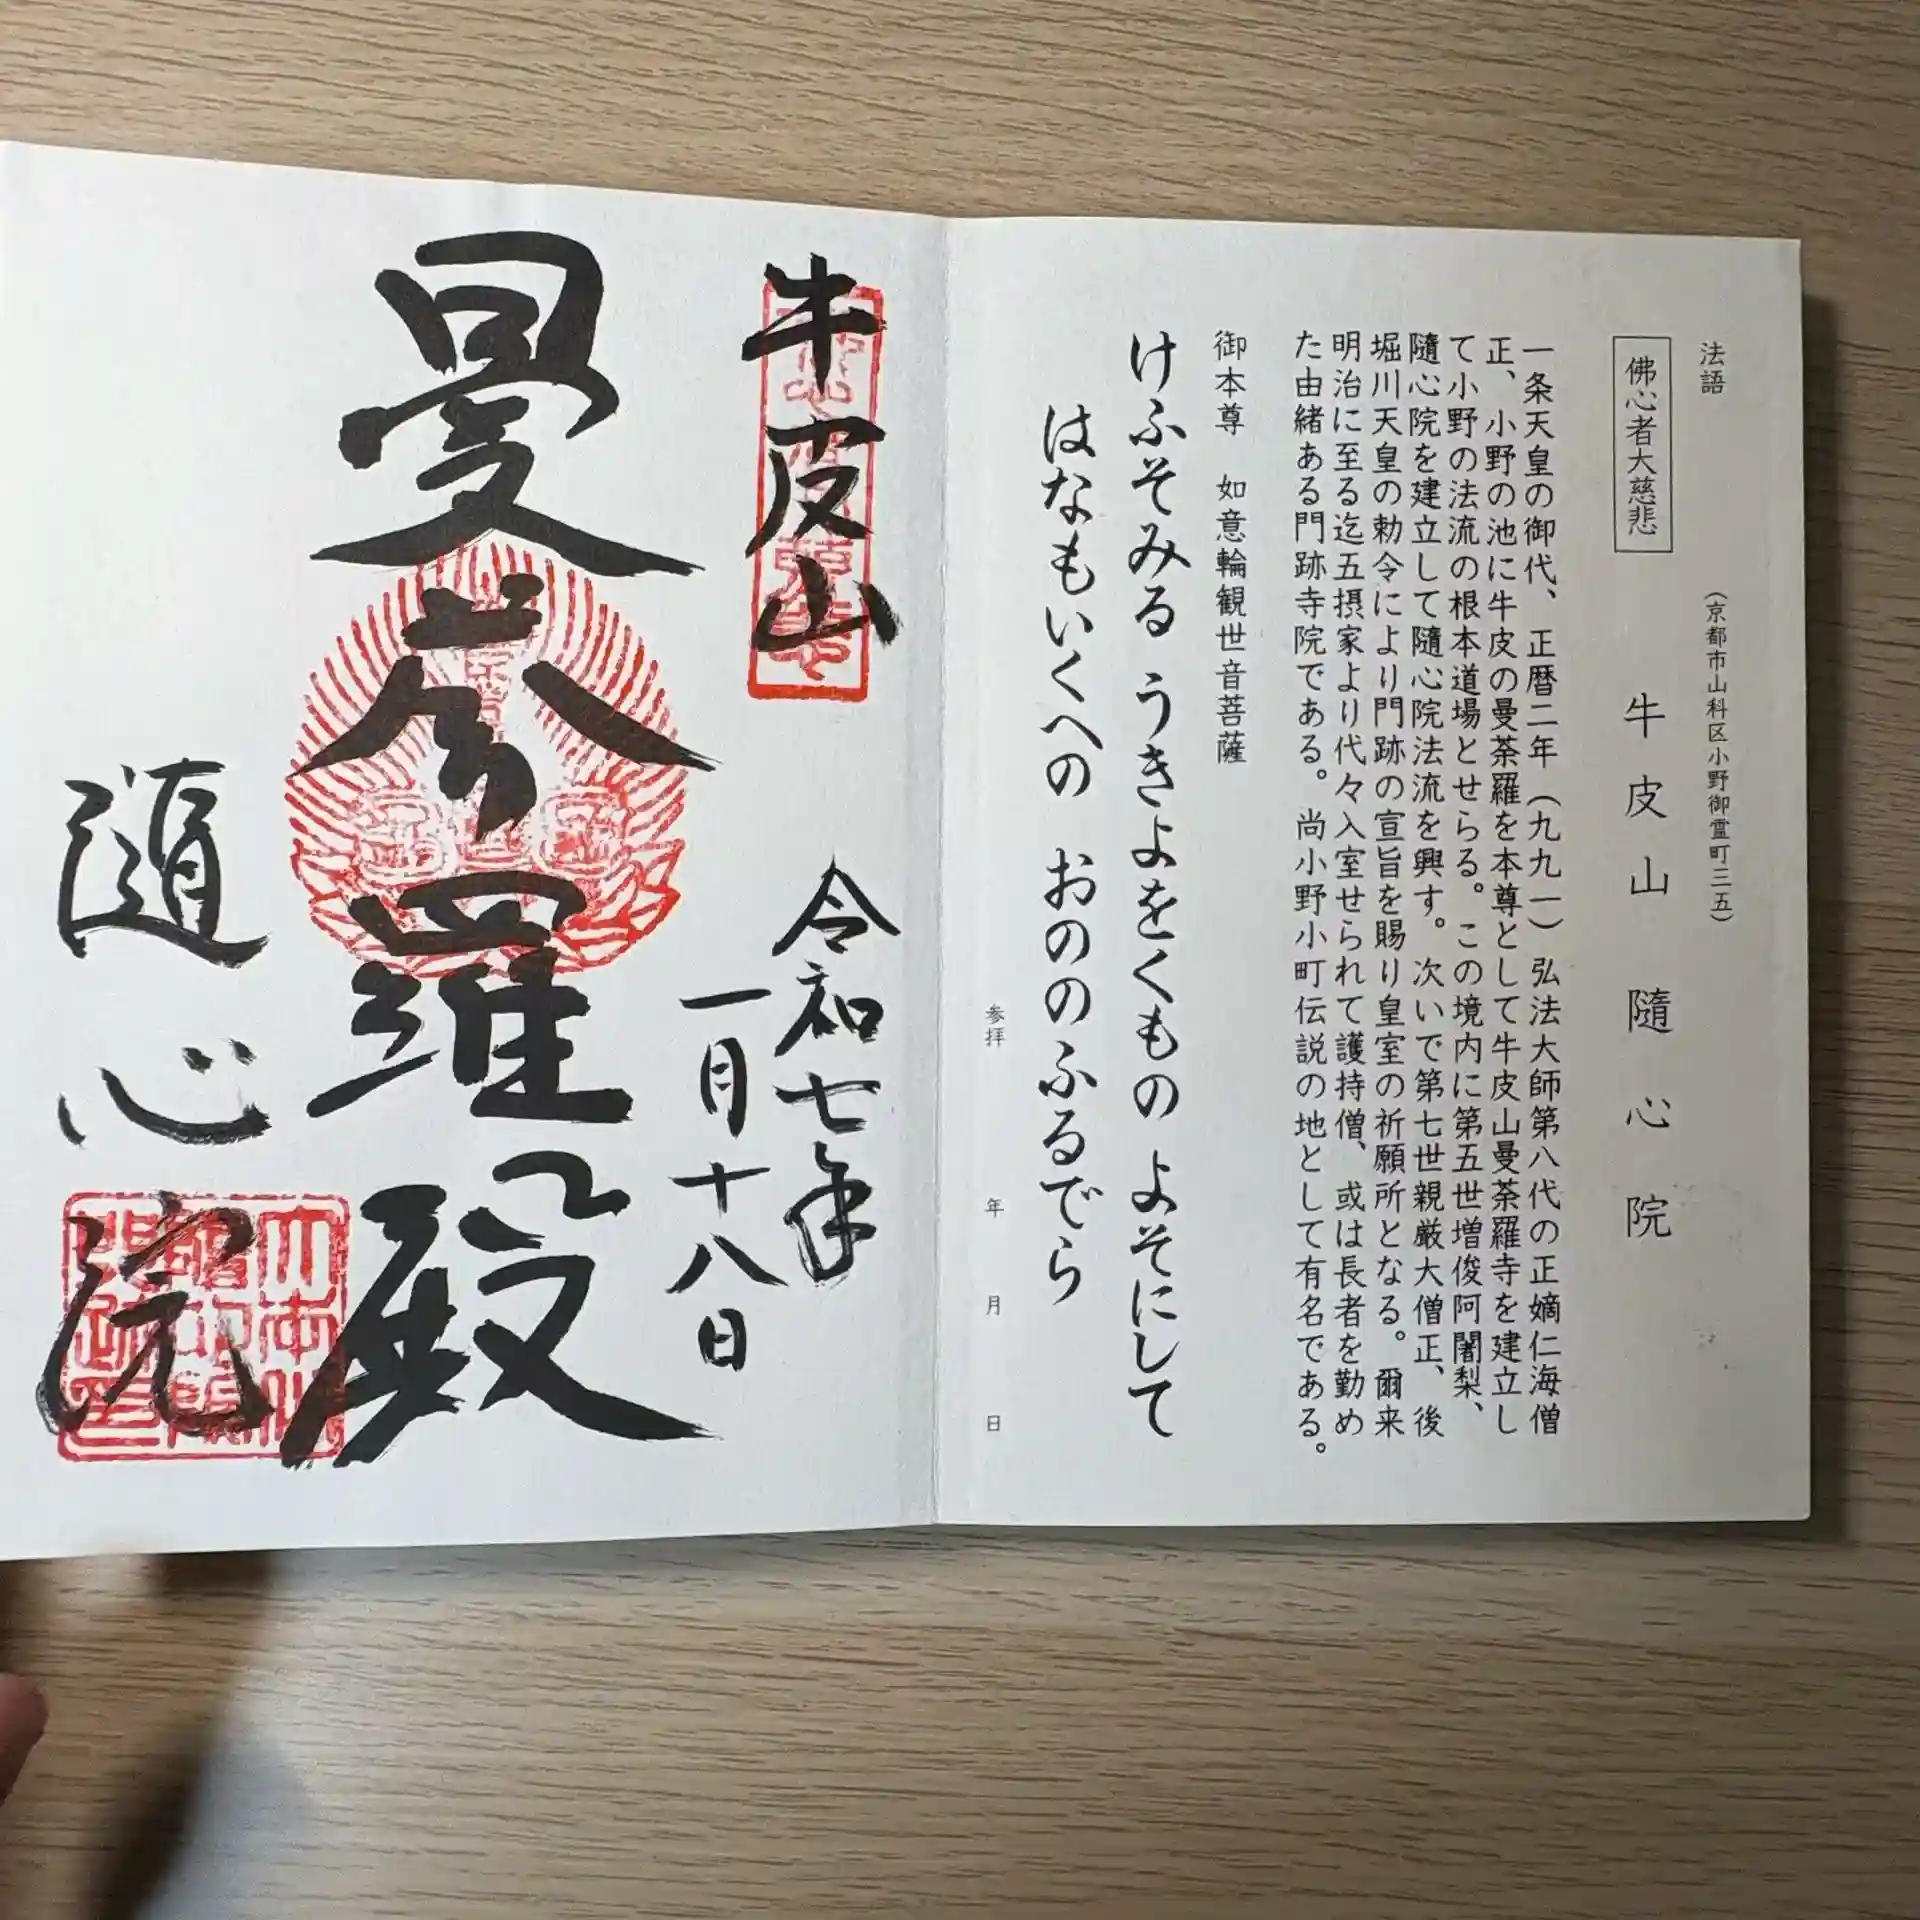 法語
（京都市山科区小野御霊町三五）
佛心者大慈悲
牛皮山 隨心院
一条天皇の御代、正暦二年（九九一）弘法大師第八代の正嫡仁海僧
正、小野の池に牛皮の曼荼羅を本尊として牛皮山曼荼羅寺を建立し
て小野の法流の根本道場とせらる。この境内に第五世増俊阿闍梨、
隨心院を建立して隨心院法流を興す。次いで第七世親厳大僧正、後
堀川天皇の勅令により門跡の宣旨を賜り皇室の祈願所となる。爾来
明治に至る迄五摂家より代々入室せられて護持僧、或は長者を勤め
た由緒ある門跡寺院である。尚小野小町伝説の地として有名である。
御本尊 如意輪観世音菩薩
けふそみる うきよをくもの よそにして
はなもいくへの おののふるでら
参拝 年 月 日
牛皮山
令和七年
一月十八日
曼荼羅殿
隨心院